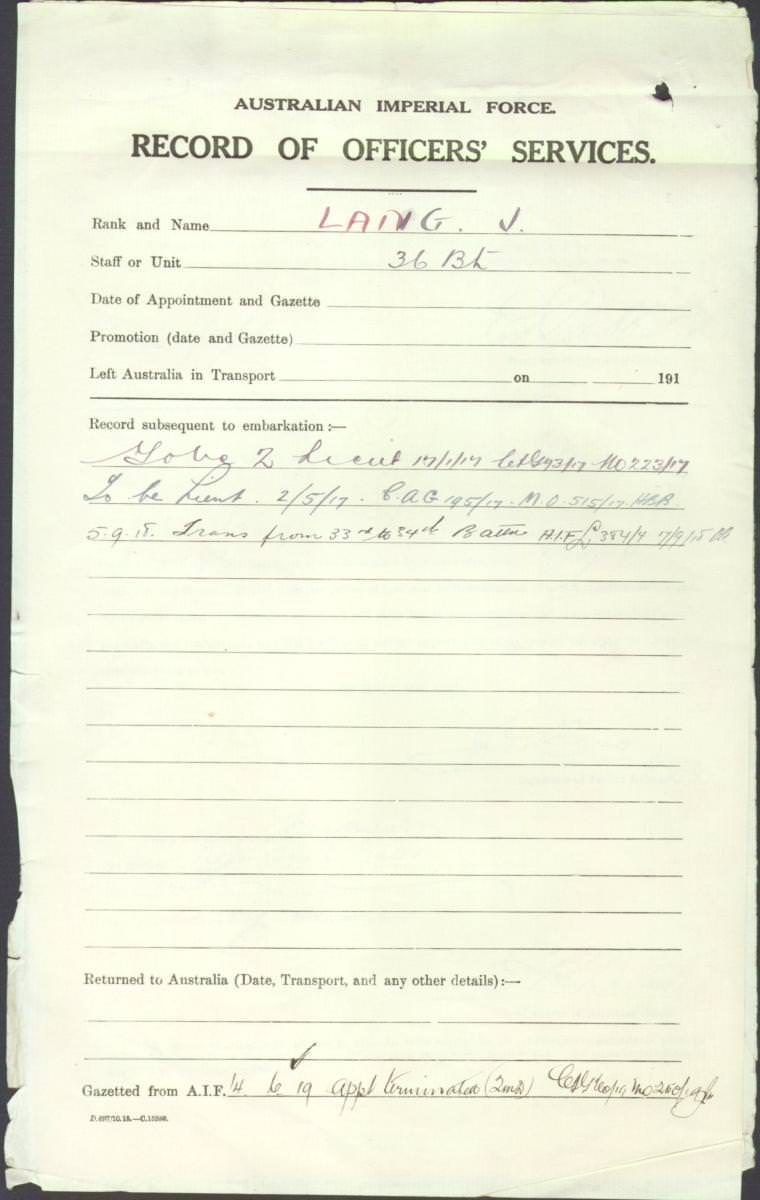 AUSTRALIAN IMPERIAL FORCE.
RECORD OF OFFICERS' SERVICES.
Rank and Name LANG. J.
Staff or Unit 36 Bn
Date of Appointment and Gazette
Promotion (date and Gazette)
Left Australia in Transport on 191
Record subsequent to embarkation :—
To be 2 Lieut 17/1/17 MO 223/17
To be Lieut. 2/5/17. C.A.G 195/17. M.O. 515/17. HBR
5.9.18. Trans from 33rd to 34th Battn A.I.F. 384/4 7/9/18
Returned to Australia (Date, Transport, and any other details):—
Gazetted from A.I.F. 14 6 19 Appt terminated (2MD)
D.697/10.15.—C.15286.